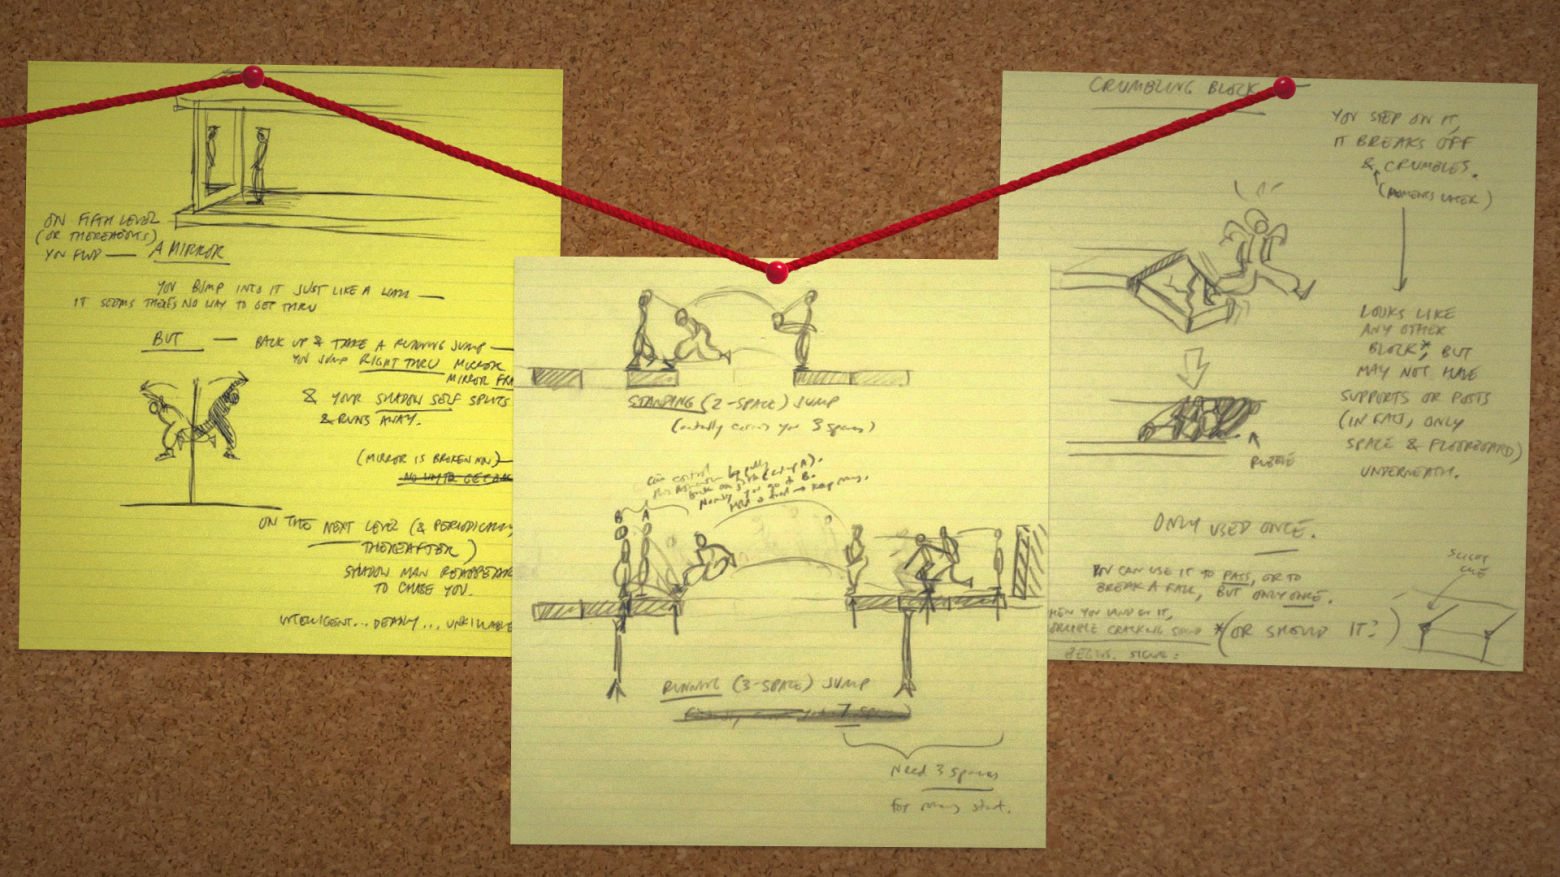 ON FIFTH LEVEL
(OR THEREABOUTS)
YOU FIND — A MIRROR
YOU BUMP INTO IT JUST LIKE A WALL —
IT SEEMS THERE'S NO WAY TO GET THRU
BUT — BACK UP & TAKE A RUNNING JUMP —
YOU JUMP RIGHT THRU MIRROR
MIRROR FRA
& YOUR SHADOW SELF SPLITS
& RUNS AWAY.
(MIRROR IS BROKEN NOW)
ON THE NEXT LEVEL (& PERIODICALLY
THEREAFTER)
SHADOW MAN REAPPEAR
TO CHASE YOU.
INTELLIGENT... DEADLY... UNKILLABLE
STANDING (2-SPACE) JUMP
(actually carries you 3 spaces)
Can control
this by pulling
back on stick (jump A).
Normally you go to B.
B A
RUNNING (3-SPACE) JUMP
7
Need 3 spaces
for running start.
CRUMBLING BLOCK
YOU STEP ON IT,
IT BREAKS OFF
& CRUMBLES.
(MOMENTS LATER)
LOOKS LIKE
ANY OTHER
BLOCK*, BUT
MAY NOT HAVE
SUPPORTS OR POSTS
(IN FACT, ONLY
SPACE & FLOORBOARD)
UNDERNEATH.
RUBBLE
ONLY USED ONCE.
YOU CAN USE IT TO PASS, OR TO
BREAK A FALL, BUT ONLY ONCE.
HEN YOU LAND ON IT,
CRACKING SOUND
BEGINS.
*(OR SHOULD IT?)
SLIGHT